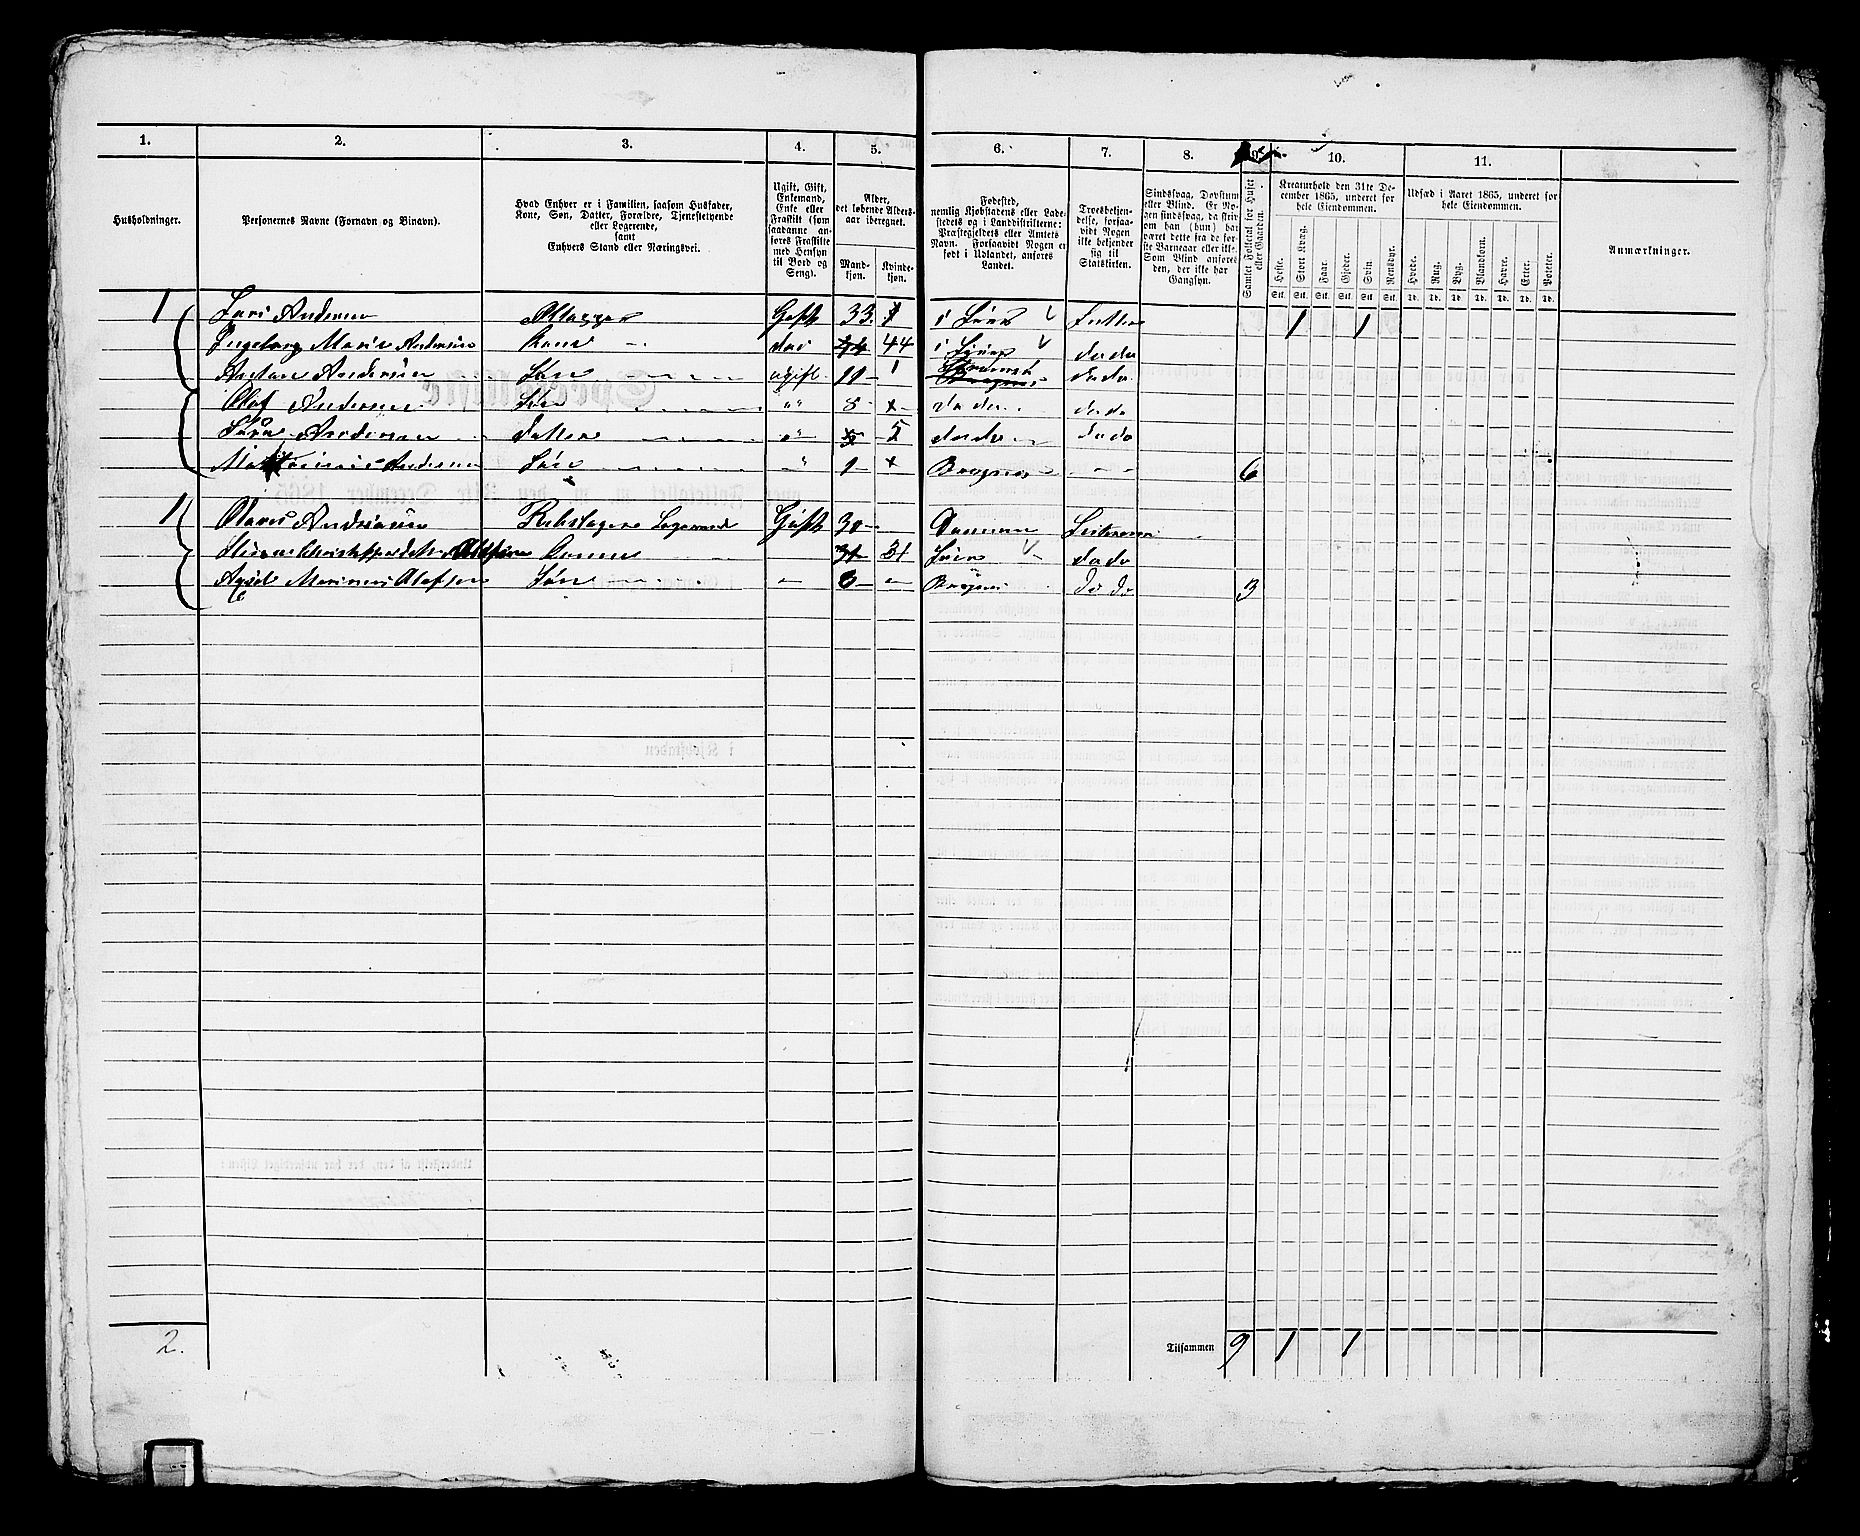 1. 2. 3. 4. 5. 6. 7. 8. 9. 10. 11.
Husholdninger.
Personernes Navne (Fornavn og Binavn).
Hvad Enhver er i Familien, saasom Husfader,
Kone, Søn, Datter, Forældre, Tjenestetyende
eller Logerende,
samt
Enhvers Stand eller Næringsvei.
Ugift, Gift,
Enkemand,
Enke eller
Fraskilt (som
saadanne an-
føres Fraskilte
med Hensyn
til Bord og
Seng).
Alder,
det løbende Alders-
aar iberegnet.
Mand-
kjøn.
Kvinde-
kjøn.
Fødested,
nemlig Kjøbstadens eller Lade-
stedets og i Landdistrikterne:
Præstegjeldets eller Amtets
Navn. Forsaavidt Nogen er
født i Udlandet, anføres
Landet.
Troesbekjen-
delse, forsaa-
vidt Nogen
ikke bekjender
sig til
Statskirken.
Sindssvag, Døvstum
eller Blind. Er No-
gen sindssvag, da skriv
om han (hun) har
været dette fra de før-
ste Barneaar eller ikke.
Som Blind anføres
den, der ikke har
Gangsyn.
Samlet Folketal for Huset
eller Gaarden.
Kreaturhold den 31te De-
cember 1865, underet for
hele Eiendommen.
Heste. Stort Kvæg. Faar. Gjeder. Svin. Rensdyr.
Stk. Stk. Stk. Stk. Stk. Stk.
Udsæd i Aaret 1865, underet for
hele Eiendommen.
Hvede. Rug. Byg. Blandkorn. Havre. Erter. Poteter.
Td. Td. Td. Td. Td. Td. Td.
Anmærkninger.
1 Lars Andersen Gift 33 i Lier 1 1
Ingeborg Marie Andersen Kone do 44 i Lier dodo
Anton Andersen Søn ugift 11 dodo
Olaf Andersen Søn " 8 dodo dodo
Andersen Datter " 5 dodo dodo
Andersen Søn " 1 Bragnes 6
1 Olaves Andriasen Rebslager Logerende Gift 30
Konne 31 Lier dodo
Axsel Marinius Olafsen Søn 0 Bragnes do do 3
2.
Tilsammen 9 1 1